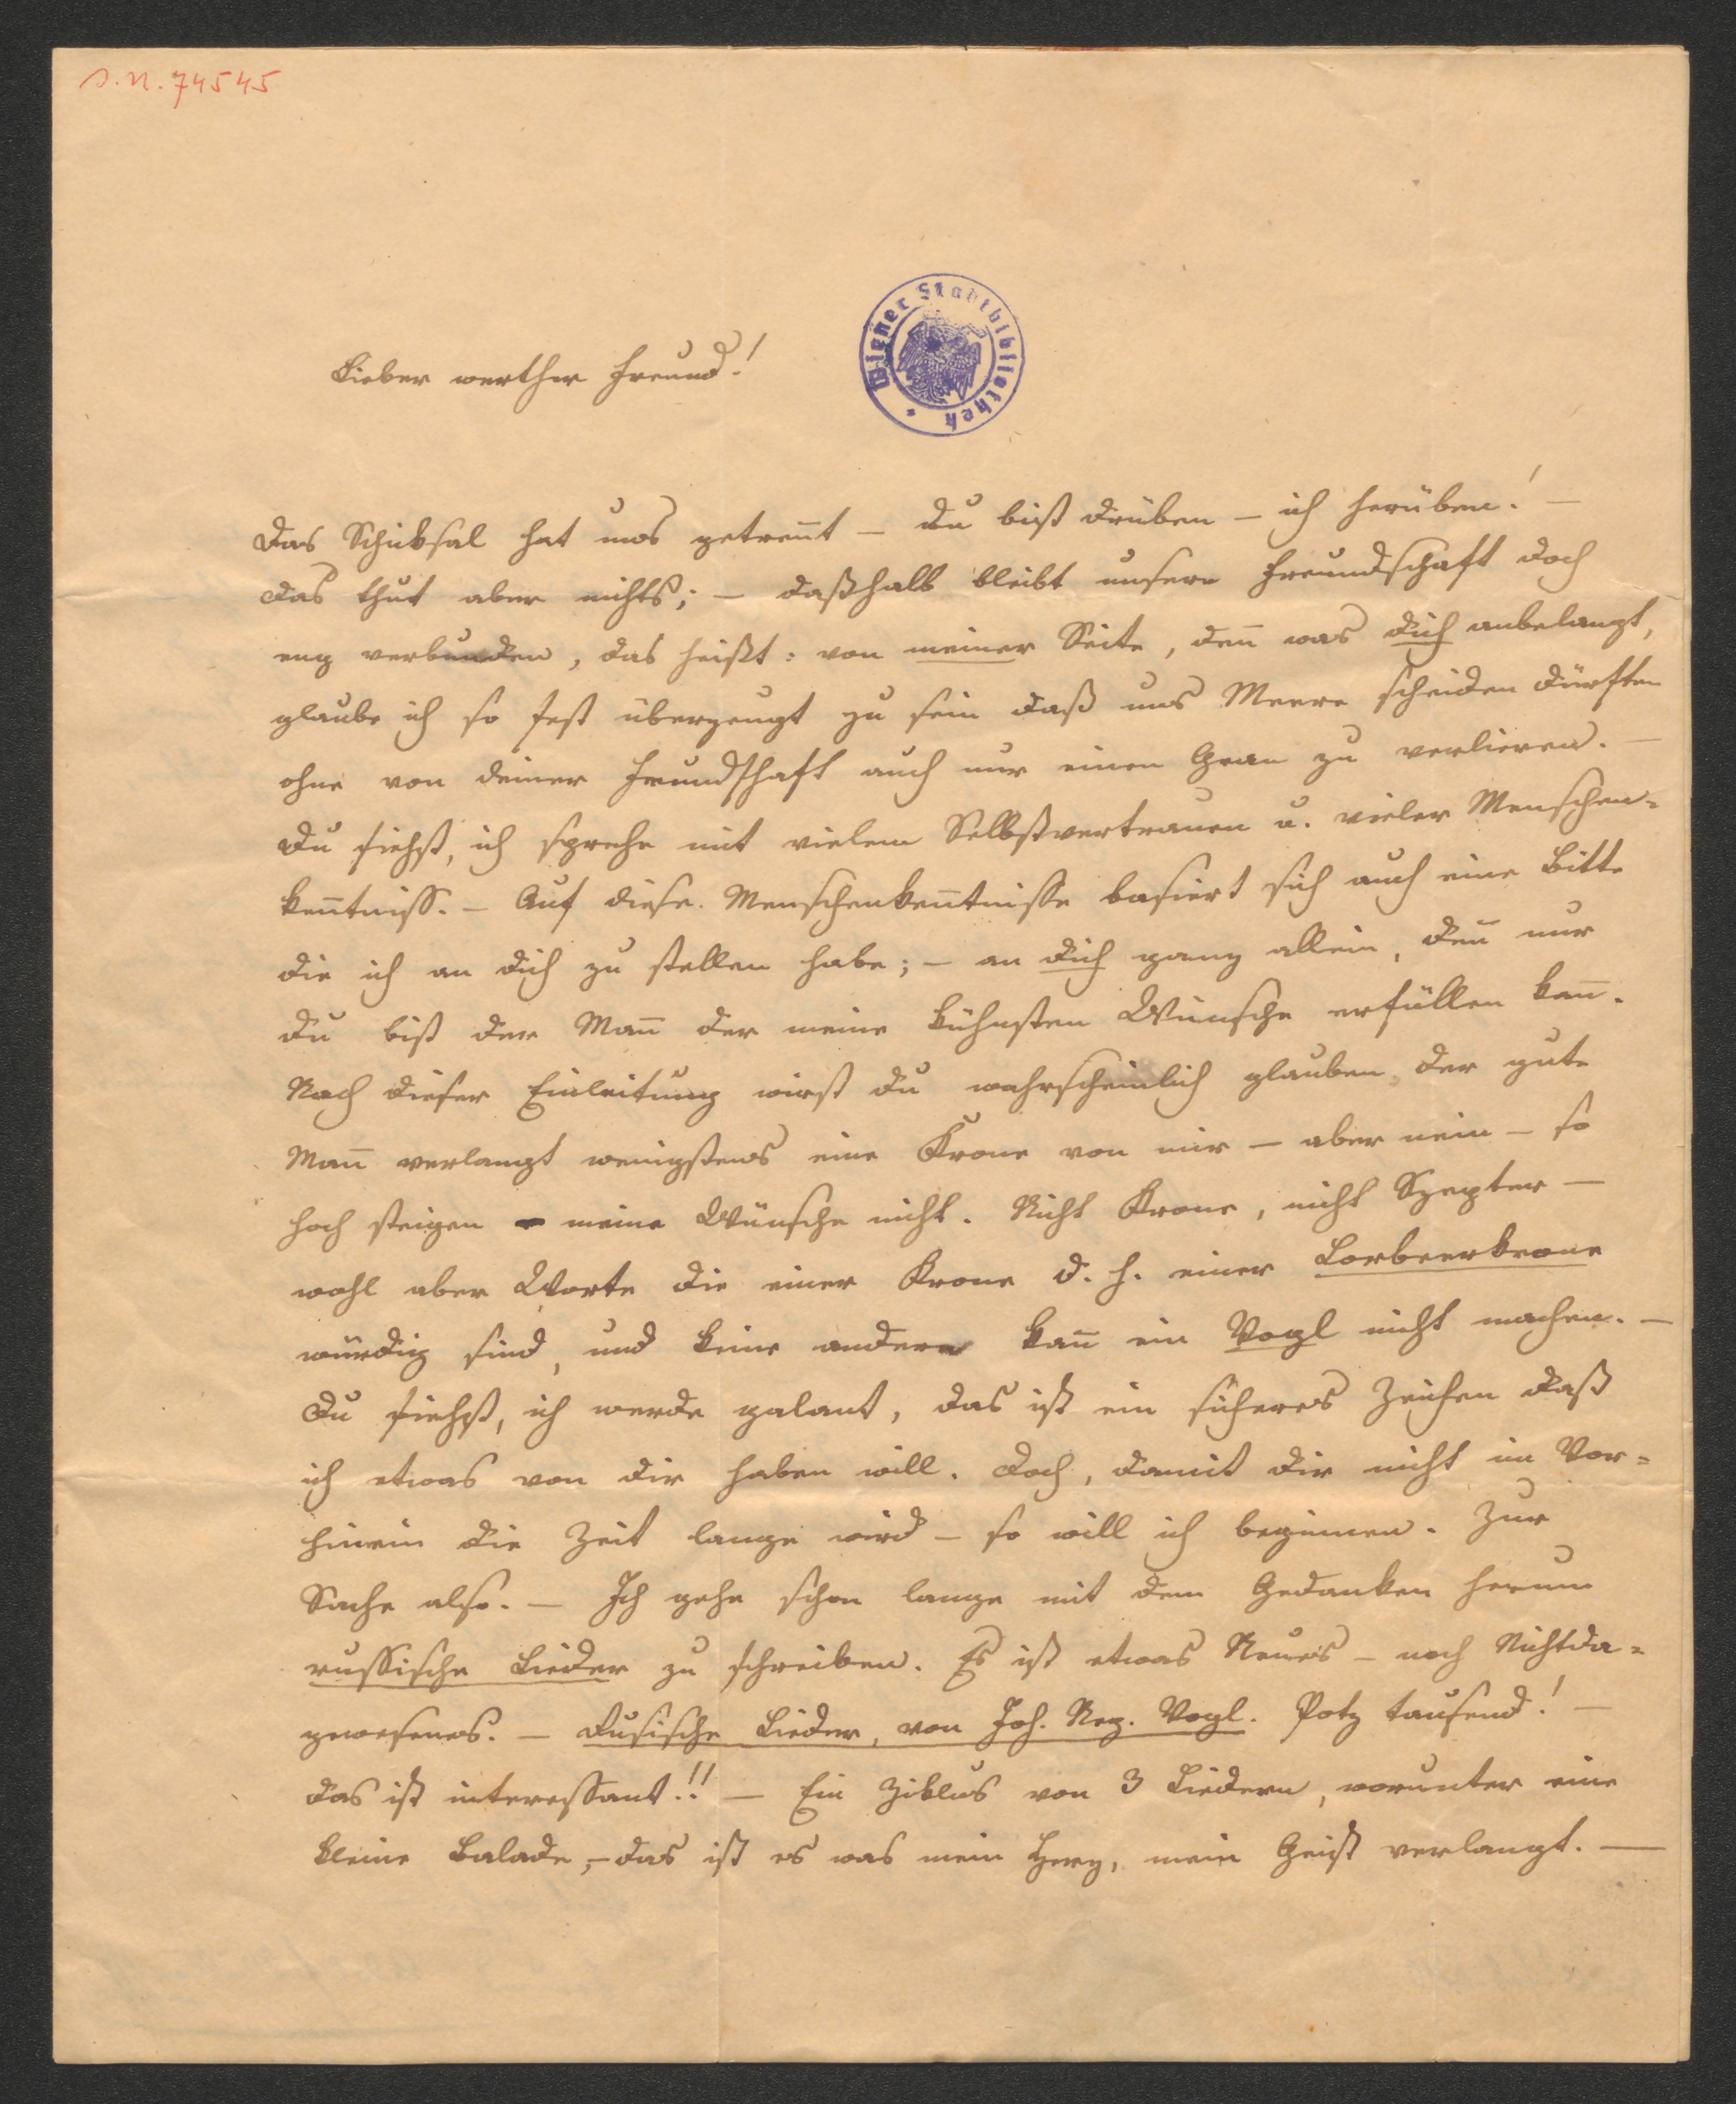 I.N. 74545
Wiener Stadtbibliothek
Lieber werther Freund!
Das Schiksal hat uns getreñt – du bist drüben – ich herüben! –
das thut aber nichts; – daßhalb bleibt unsere Freundschaft doch
eng verbunden, das heißt: von meiner Seite, deñ was dich anbelangt,
glaube ich so fest überzeugt zu sein daß uns Meere scheiden dürften
ohne von deiner Freundschaft auch nur einen Gran zu verlieren. –
Du siehst, ich spreche mit vielem Selbstvertrauen u. vieler Menschen-
keñtniss. – Auf diese Menschenkeñtnisse basiert sich auch eine Bitte
die ich an dich zu stellen habe; – an dich ganz allein, deñ nur
du bist der Mañ der meine kühnsten Wünsche erfüllen kañ.
Nach dieser Einleitung wirst du wahrscheinlich glauben, der gute
Mañ verlangt wenigstens eine Krone von mir – aber nein – so
hoch steigen meine Wünsche nicht. Nicht Krone, nicht Szepter –
wohl aber Worte die einer Krone d. h. einer Lorbeerkrone
würdig sind, und keine andere kañ ein Vogl nicht machen. –
Du siehst, ich werde galant, das ist ein sicheres Zeichen daß
ich etwas von dir haben will. Doch, damit dir nicht im Vor-
hinein die Zeit lange wird – so will ich beginnen. Zur
Sache also. – Ich gehe schon lange mit dem Gedanken herum
russische Lieder zu schreiben. Es ist etwas Neues – noch Nichtda-
gewesenes. – Rusische Lieder, von Joh. Nep. Vogl. Potz tausend! –
das ist interessant!! – Ein Ziklus von 3 Liedern, worunter eine
kleine Balade, – das ist es was mein Herz, mein Geist verlangt. –